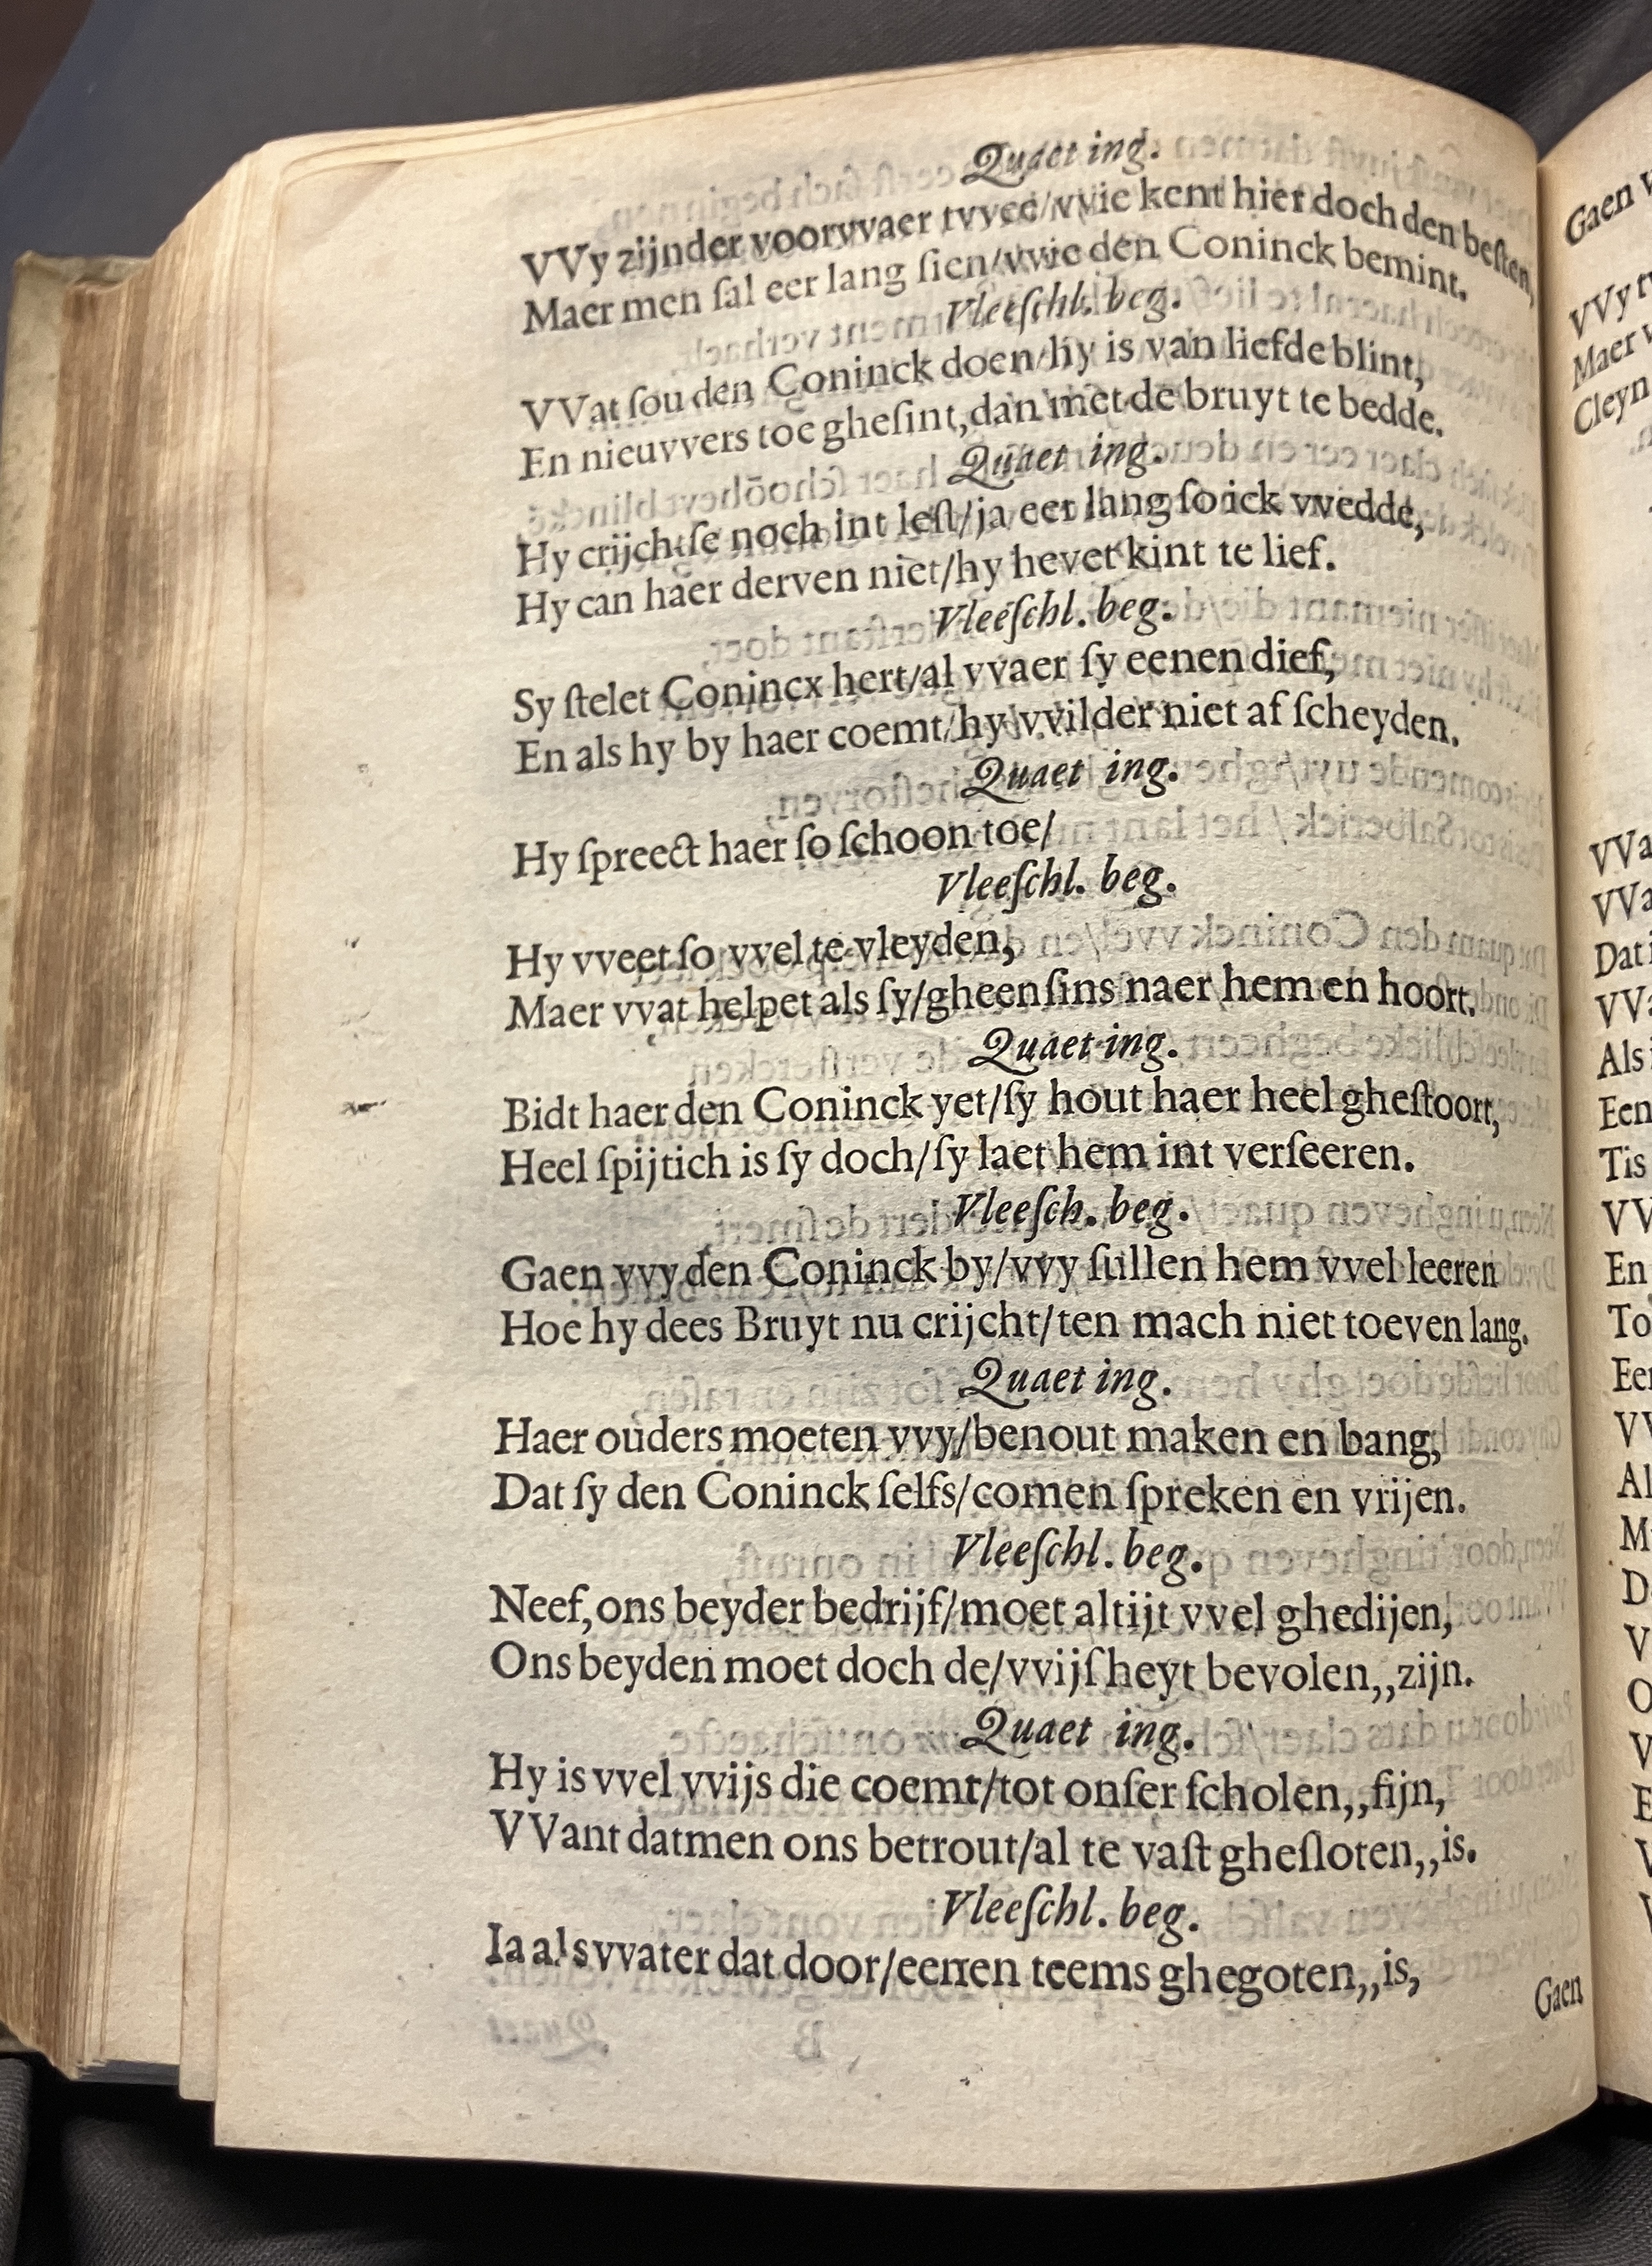 Quaet ing.
VVy zijnder voorvvaer tvvee/vvie kent hier doch den beſten,
Maer men ſal eer lang ſien/vvie den Coninck bemint.
Vleeſchl. beg.
VVat ſou den Coninck doen/hy is van liefde blint,
En nieuvvers toe gheſint, dan met de bruyt te bedde.
Quaet ing.
Hy crijchtſe noch int leſt/ja eer lang ſo ick vvedde,
Hy can haer derven niet/hy hevet kint te lief.
Vleeſchl. beg.
Sy ſtelet Conincx hert/al vvaer ſy eenen dief,
En als hy by haer coemt/hy vvilder niet af ſcheyden.
Quaet ing.
Hy ſpreect haer ſo ſchoon toe/
Vleeſchl. beg.
Hy vveet ſo vvel te vleyden,
Maer vvat helpet als ſy/gheenſins naer hem en hoort.
Quaet ing.
Bidt haer den Coninck yet/ſy hout haer heel gheſtoort,
Heel ſpijtich is ſy doch/ſy laet hem int verſeeren.
Vleeſch. beg.
Gaen vvy den Coninck by/vvy ſullen hem vvel leeren
Hoe hy dees Bruyt nu crijcht/ten mach niet toeven lang.
Quaet ing.
Haer ouders moeten vvy/benout maken en bang,
Dat ſy den Coninck ſelfs/comen ſpreken en vrijen.
Vleeſchl. beg.
Neef, ons beyder bedrijf/moet altijt vvel ghedijen,
Ons beyden moet doch de/vvijſheyt bevolen,,zijn.
Quaet ing.
Hy is vvel vvijs die coemt/tot onſer ſcholen,,fijn,
VVant datmen ons betrout/al te vaſt gheſloten,,is.
Vleeſchl. beg.
Ia als vvater dat door/eenen teems ghegoten,,is,
Gaen
Gaen
VVy
Maer
Cleyn
Dat
Als
Een
Tis
En